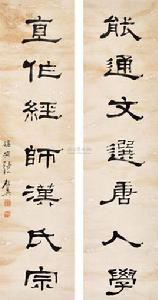 能通文選唐人學
直作經師漢氏宗